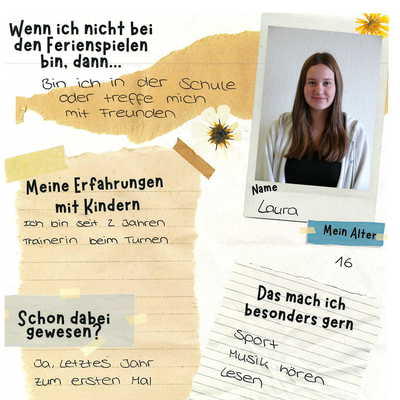 Wenn ich nicht bei
den Ferienspielen
bin, dann...
Bin ich in der Schule
oder treffe mich
mit Freunden
Name
Laura
Mein Alter
16
Meine Erfahrungen
mit Kindern
Ich bin seit 2 Jahren
Trainerin beim Turnen
Schon dabei
gewesen?
Ja, Letztes Jahr
zum ersten Mal
Das mach ich
besonders gern
Sport
Musik hören
Lesen